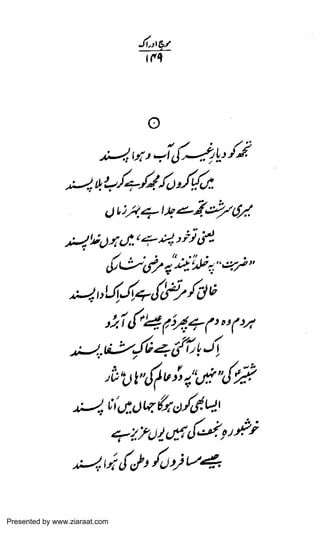 موجِ ادراک
۱۴۹
تجھ کو دیارِ غیر کی آب و ہوا پسند
میں کیا کروں کہ مجھ کو ہے کرب و بلا پسند
میری سرشت تجھ سے جدا ہے بہر زماں
یعنی تو خود پسند ہے، میں ہوں خدا پسند
خالق کو مرتضیٰؑ کی ہے اک اک ادا پسند
ہر دم وہ دم ہے پھر دمِ عیسیٰؑ کی آبرو
اک بار آ گئی جسے خاکِ شفا پسند
شبیرؑ کی "نہیں" پہ دو عالم کی "ہاں" نثار
ایسا بھی کون ہوگا جہاں میں اَنا پسند
خوشبوئے رہِ نجف کی ہمیں یوں عزیز ہے
جیسے مسافروں کو وطن کی ہوا پسند
Presented by www.ziaraat.com